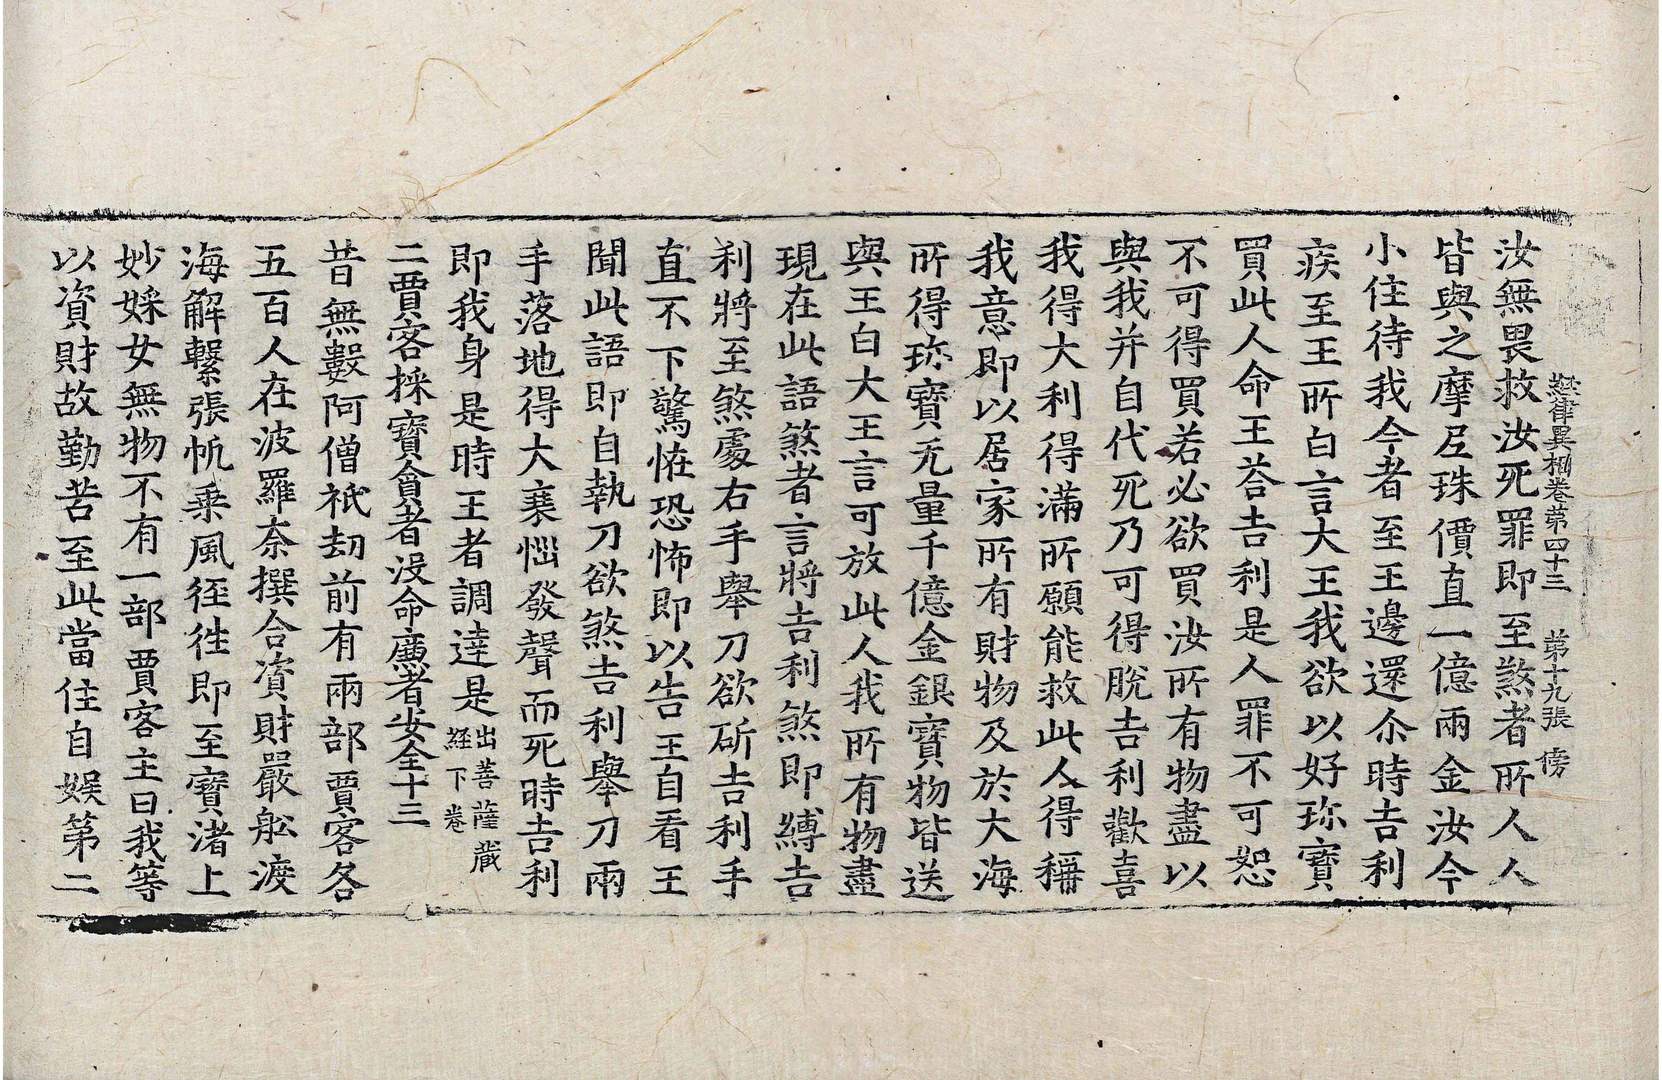 經律異相卷第四十三 第十九張 傍
汝無畏救汝死罪即至煞者所人人
皆與之摩尼珠價直一億兩金汝今
小住待我今者至王邊還尒時吉利
疾至王所白言大王我欲以好珎寶
買此人命王荅吉利是人罪不可恕
不可得買若必欲買汝所有物盡以
與我并自代死乃可得脫吉利歡喜
我得大利得滿所願能救此人得稱
我意即以居家所有財物及於大海
所得珎寶无量千億金銀寶物皆送
與王白大王言可放此人我所有物盡
現在此語煞者言將吉利煞即縛吉
利將至煞處右手舉刀欲斫吉利手
直不下驚恠恐怖即以告王自看王
聞此語即自執刀欲煞吉利舉刀兩
手落地得大衰惱發聲而死時吉利
即我身是時王者調達是出菩薩藏經下卷
二賈客採寶貪者沒命廉者安全十三
昔無數阿僧祇劫前有兩部賈客各
五百人在波羅奈撰合資財嚴舩渡
海解繫張帆乗風徑徃即至寶渚上
妙婇女無物不有一部賈客主曰我等
以資財故勤苦至此當住自娛第二